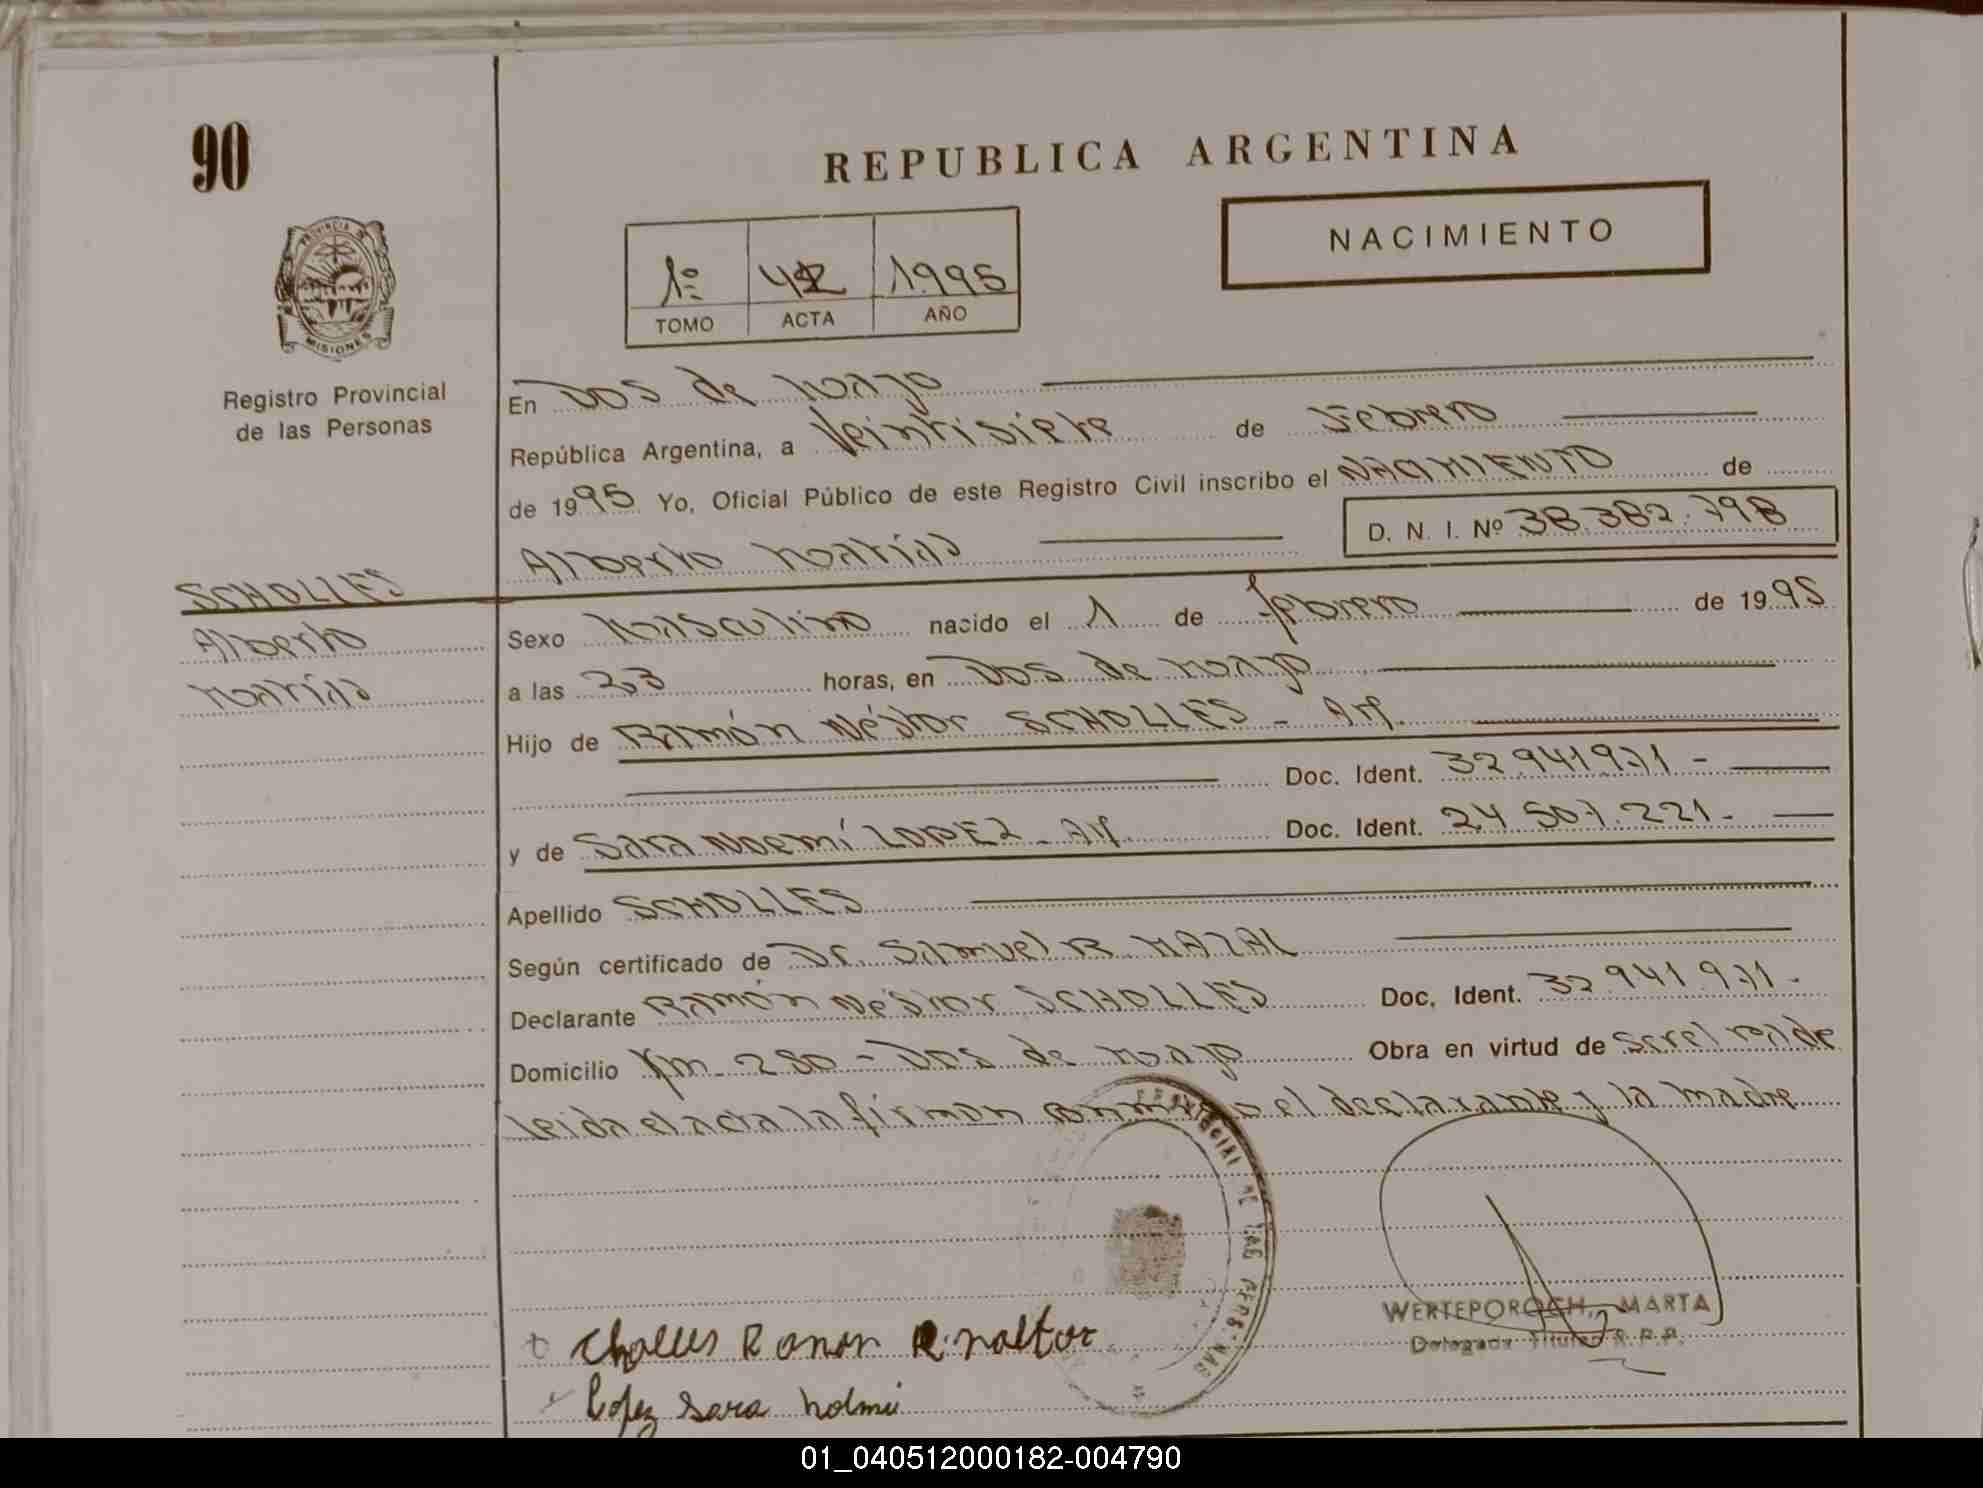 90
REPUBLICA ARGENTINA
NACIMIENTO
PROVINCIA DE
MISIONES
Registro Provincial
de las Personas
1º 42 1995
TOMO ACTA AÑO
En Dos de Mayo
República Argentina, a Veintisiete de Febrero
de 1995 Yo, Oficial Público de este Registro Civil inscribo el NACIMIENTO de
Alberto Matías D. N. I. Nº 38.382.798
SCHOLLES
Alberto
Matías
Sexo Masculino nacido el 1 de febrero de 1995
a las 23 horas, en Dos de Mayo
Hijo de Ramón Néstor SCHOLLES - Arg.
Doc. Ident. 32941971 -
y de Sara Noemí LOPEZ - Arg. Doc. Ident. 24 507.221 -
Apellido SCHOLLES
Según certificado de Dr. Samuel R. MAZAL
Declarante Ramón Néstor SCHOLLES Doc, Ident. 32.941.971 -
Domicilio Km 280 - Dos de Mayo Obra en virtud de ser el padre
leida el acta la firman conmigo el declarante y la madre
PROVINCIAL DE LAS PERSONAS
WERTEPOROCH, MARTA
Delegada Titular R.P.P.
Lopez Sara
01_040512000182-004790